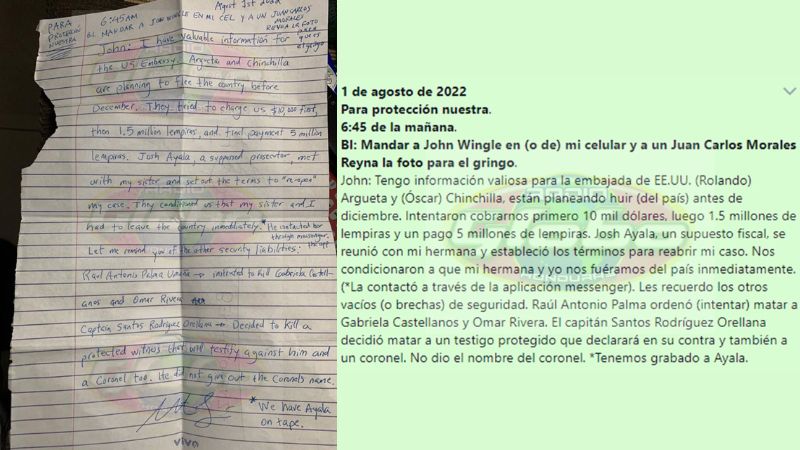 August 1st 2022
PARA PROTECCIÓN NUESTRA
6:45AM
BI MANDAR A JOHN WINGLE EN MI CEL Y A UN JUAN CARLOS MORALES REYNA LA FOTO PARA el gringo
John: I have valuable information for
the US Embassy. Argueta and Chinchilla
are planning to flee the country before
December. They tried to charge us $10,000 first,
then 1.5 million lempiras, and final payment 5 million
lempiras. Josh Ayala, a supposed prosecutor, met
with my sister and set out the terms to "re-open"
my case. They conditioned us that my sister and I
had to leave the country immediately. * He contacted her through messenger
Let me remind you of the other security liabilities:
Raul Antonio Palma → intented to kill Gabriela Castell-
anos and Omar Rivera
Captain Santos Rodriguez Orellana → Decided to kill a
protected witness that will testify against him and
a Coronel too. He did not give out the Coronel's name.
* We have Ayala
on tape.
vivo
1 de agosto de 2022
Para protección nuestra.
6:45 de la mañana.
BI: Mandar a John Wingle en (o de) mi celular y a un Juan Carlos Morales
Reyna la foto para el gringo.
John: Tengo información valiosa para la embajada de EE.UU. (Rolando)
Argueta y (Óscar) Chinchilla, están planeando huir (del país) antes de
diciembre. Intentaron cobrarnos primero 10 mil dólares, luego 1.5 millones de
lempiras y un pago 5 millones de lempiras. Josh Ayala, un supuesto fiscal, se
reunió con mi hermana y estableció los término para reabrir mi caso. Nos
condicionaron a que mi hermana y yo nos fuéramos del país inmediatamente.
(*La contactó a través de la aplicación messenger). Les recuerdo los otros
vacíos (o brechas) de seguridad. Raúl Antonio Palma ordenó (intentar) matar a
Gabriela Castellanos y Omar Rivera. El capitán Santos Rodríguez Orellana
decidió matar a un testigo protegido que declarará en su contra y también a
un coronel. No dio el nombre del coronel. *Tenemos grabado a Ayala.